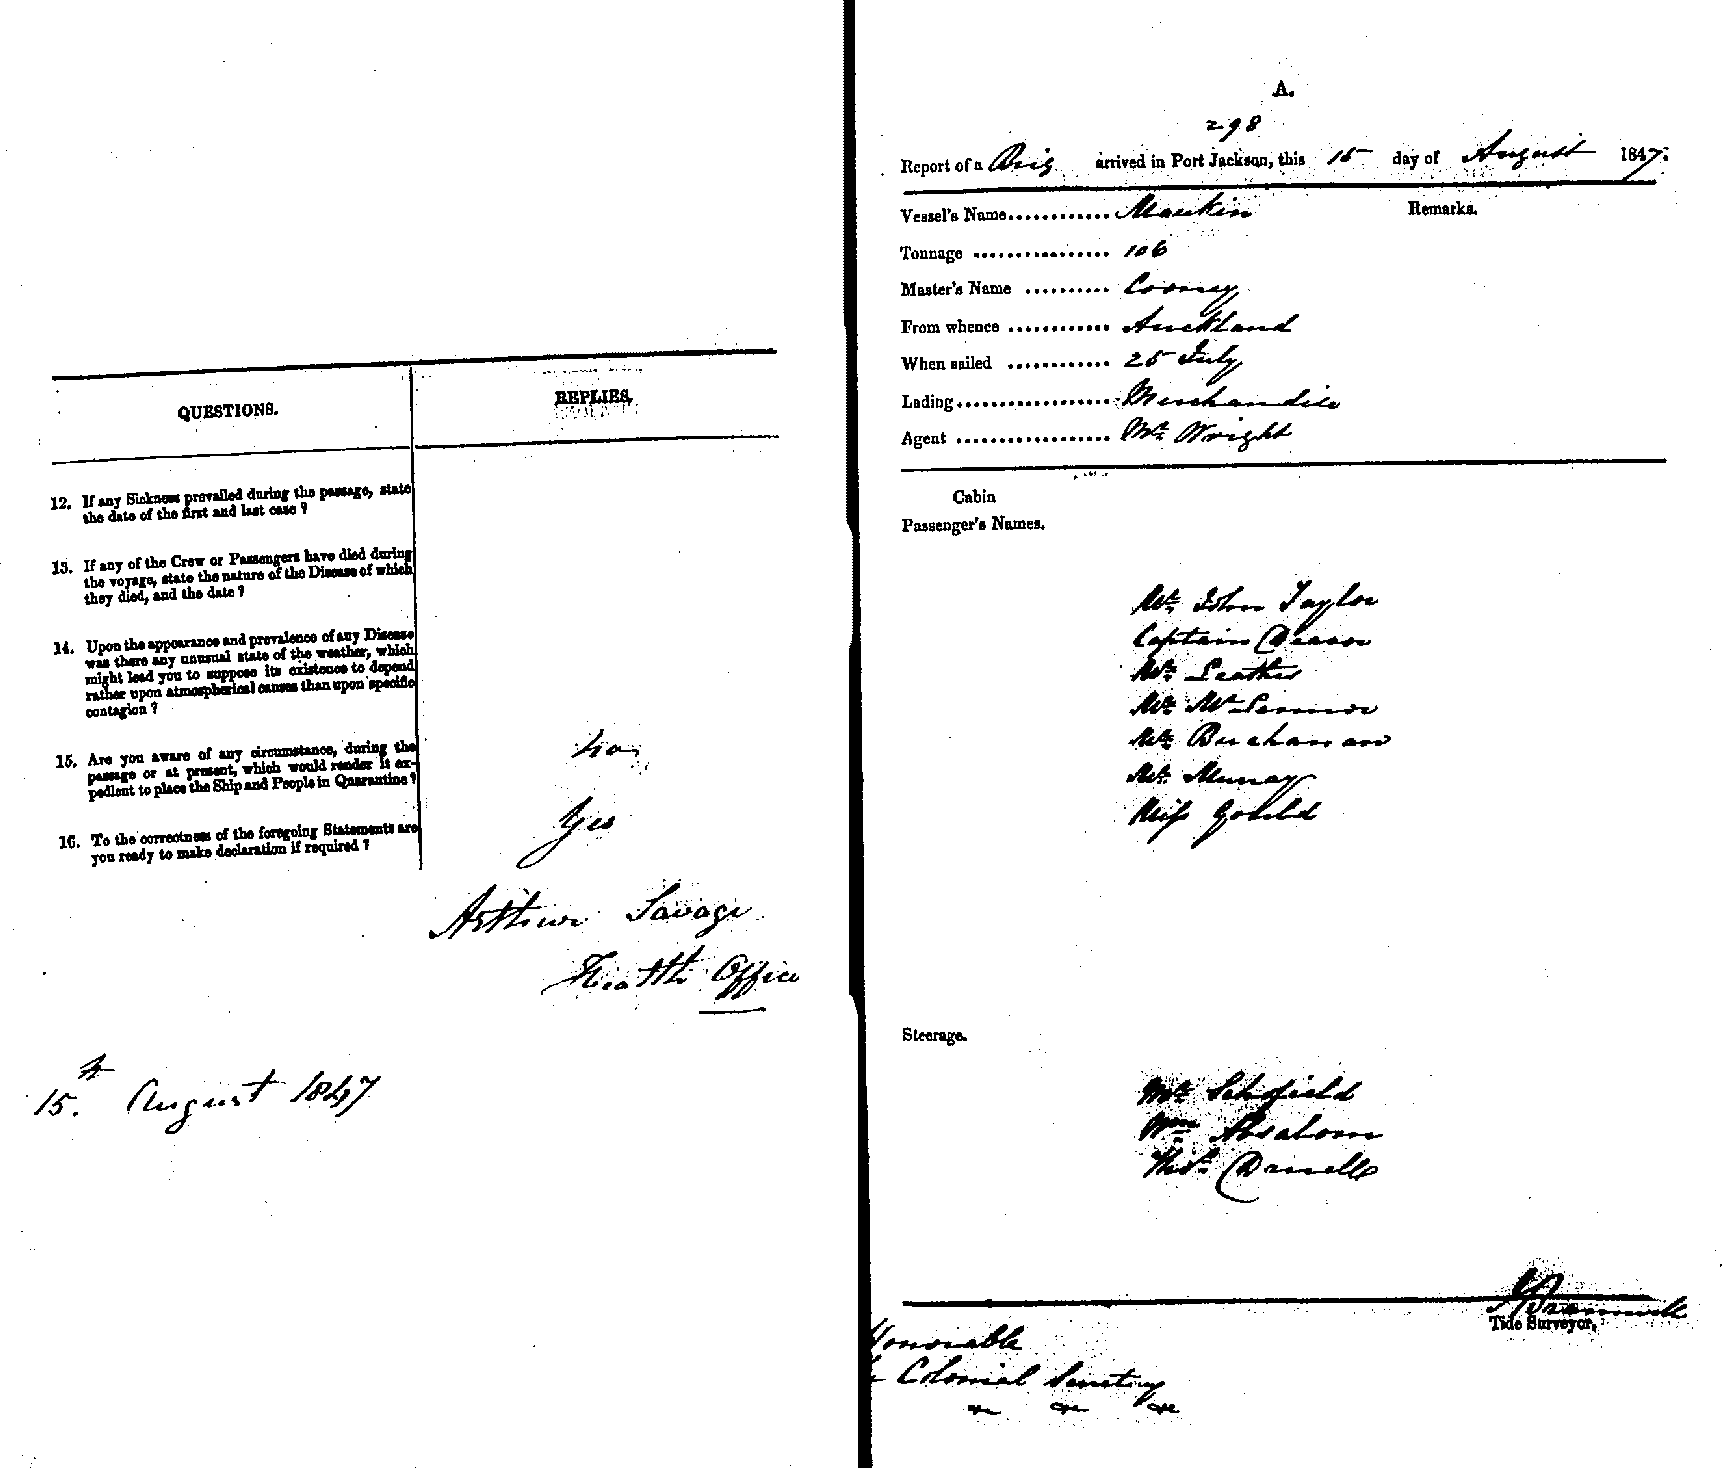 QUESTIONS.
REPLIES.
12. If any Sickness prevailed during the passage, state
the date of the first and last case ?
13. If any of the Crew or Passengers have died during
the voyage, state the nature of the Disease of which
they died, and the date ?
14. Upon the appearance and prevalence of any Disease
was there any unusual state of the weather, which
might lead you to suppose its existence to depend
rather upon atmospherical causes than upon specific
contagion ?
15. Are you aware of any circumstance, during the
passage or at present, which would render it ex-
pedient to place the Ship and People in Quarantine ?
No
16. To the correctness of the foregoing Statements are
you ready to make declaration if required ?
Yes
Arthur Savage
Health Office
15th. August 1847
A.
298
Report of a Brig arrived in Port Jackson, this 15 day of August 1847.
Vessel's Name............ Maukin
Remarks.
Tonnage ................ 106
Master's Name .......... Cooney
From whence ............ Auckland
When sailed ............ 25 July
Lading.................. Merchandise
Agent .................. Mr Wright
Cabin
Passenger's Names.
Mr John Taylor
Captain Deacon
Mr Leather
Mr
Mr Buchanan
Mr Murray
Miss Gould
Steerage.
Mr Schofield
Wm Absalom
Thos. Darnell
Tide Surveyor.
Honorable
Colonial Secretary